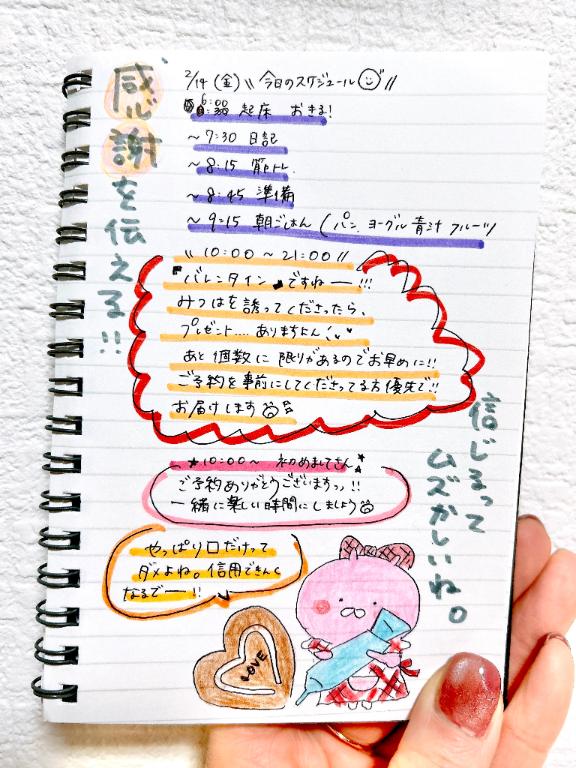 感謝を伝える!!
2/14(金)\\今日のスケジュール//
6:00 起床 おきる!
~7:30 日記
~8:15 筋トレ
~8:45 準備
~9:15 朝ごはん(パン、ヨーグル 青汁 フルーツ
\\10:00~21:00//
バレンタインですねー!!!
みつはを誘ってくださったら、
プレゼント....ありますよん!
あと個数に限りがあるのでお早めに!!
ご予約を事前にしてくださってる方優先で!!
お届けします
信じるって
ムズかしいね。
★10:00~ 初めましてさん
ご予約ありがとうございますっ!!
一緒に楽しい時間にしましょう
やっぱり口だけって
ダメよね。信用できんく
なるでー!!
LOVE